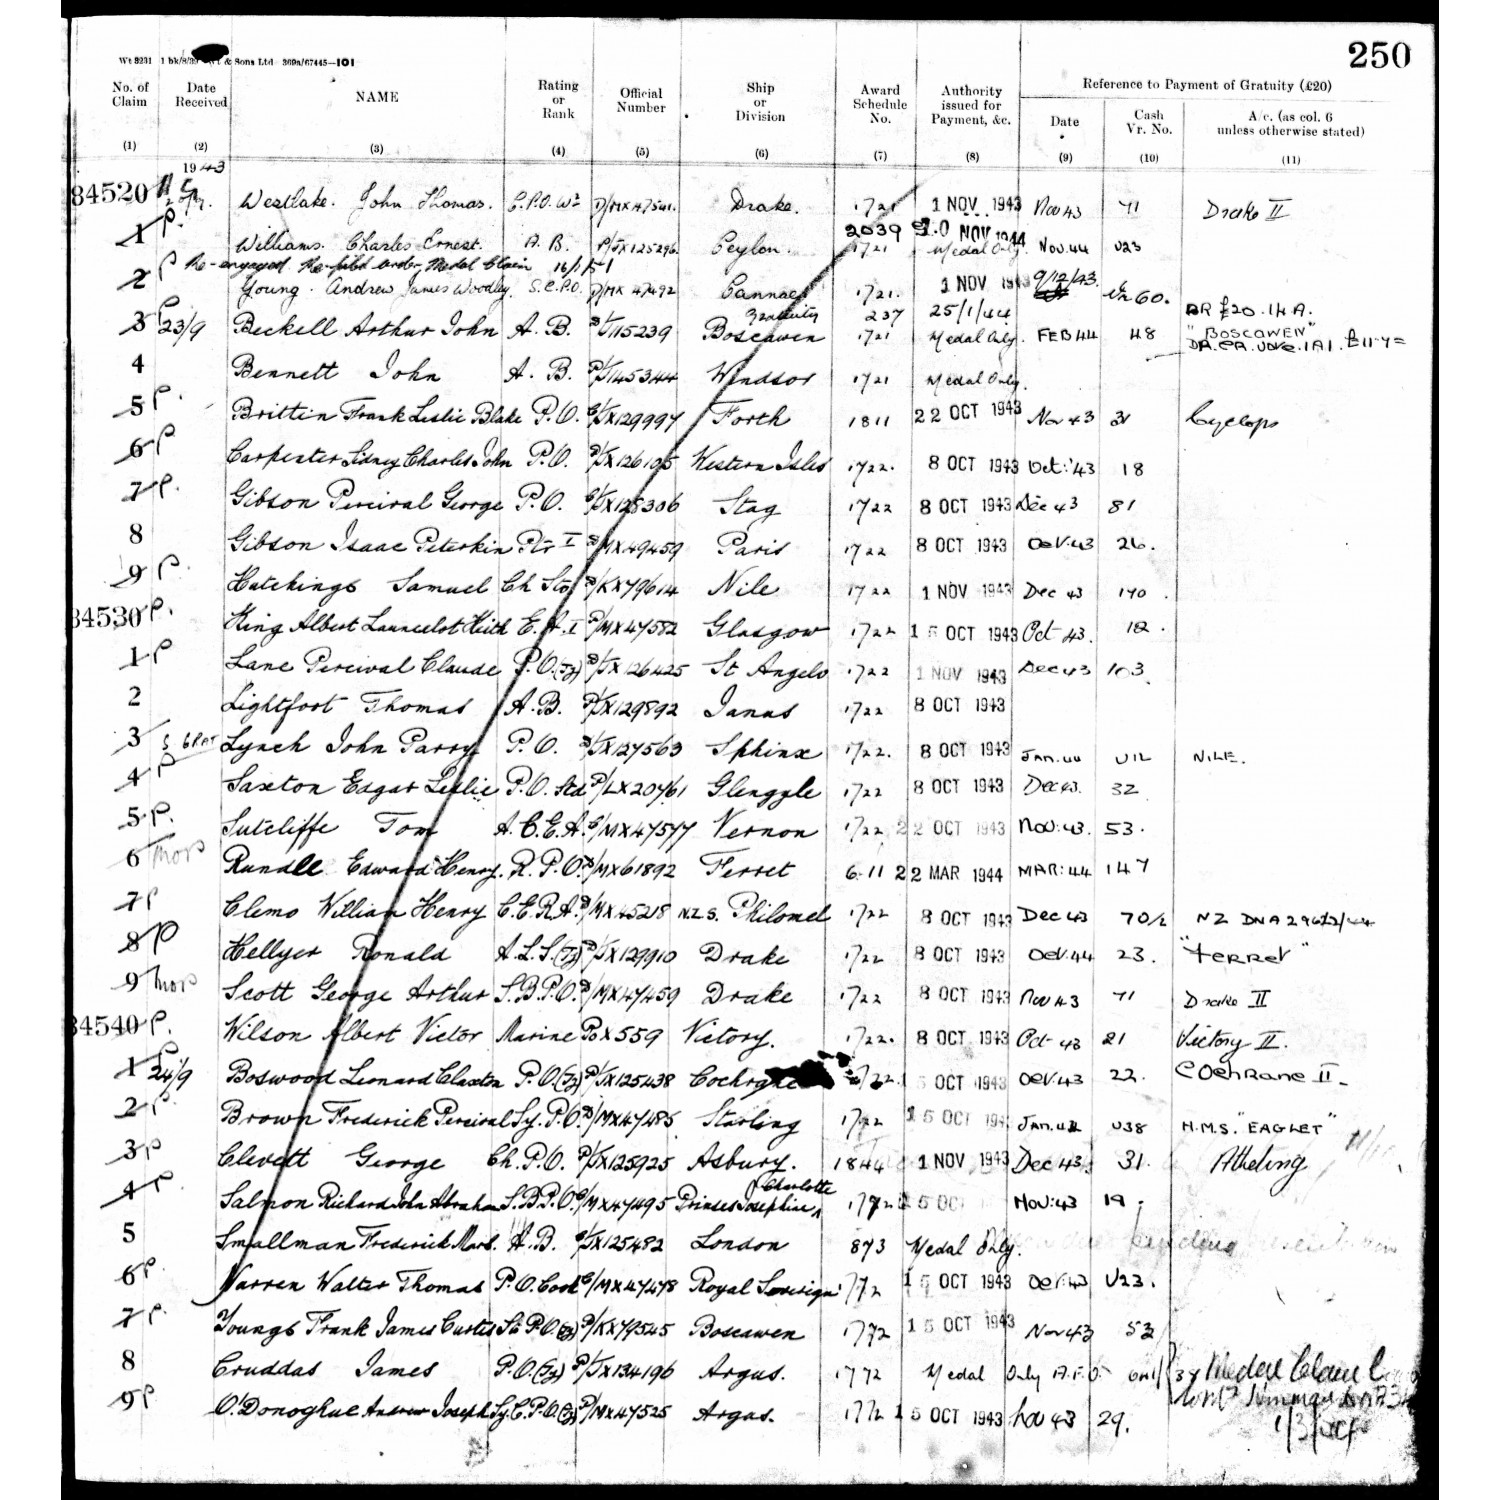 250
Wt 8231 1 bk/8/39 & Sons Ltd 369a/67445—101
No. of Claim Date Received NAME Rating or Rank Official Number Ship or Division Award Schedule No. Authority issued for Payment, &c. Reference to Payment of Gratuity (£20)
Date Cash Vr. No. A/c. (as col. 6 unless otherwise stated)
(1) (2) (3) (4) (5) (6) (7) (8) (9) (10) (11)
1943
84520 Westlake. John Thomas. C.P.O. Wr D/MX 47541. Drake. 1721 1 NOV 1943 Nov 43 71 Drake II
2039 NOV 1944
1 P. Williams. Charles Ernest. A.B. P/JX125296. Ceylon. 1721 Medal Only. Nov. 44 U23
Re-engaged. Medal Claim 16/1/51
2 P Young. Andrew James Woodley. S.C.P.O. D/MX 47492 Cannae 1721. 1 NOV 1943 9/12/43. 60.
Gratuity 237 25/1/44 DR £20.14A.
3 P 23/9 Beckell Arthur John A.B. 115239 Boscawen 1721 Medal Only. FEB 44 48 "BOSCAWEN"
4 Bennett John A.B. P/J145344 Windsor 1721 Medal Only.
5 P. Brittin Frank Leslie Blake P.O. C/JX129997 Forth 1811 22 OCT 1943 Nov 43 31 Cyclops
6 P Carpenter Sidney Charles John P.O. P/JX126105 Western Isles 1722. 8 OCT 1943 Oct: '43 18
7 P. Gibson Percival George P.O. C/JX128306 Stag 1722 8 OCT 1943 Dec 43 81
8 Gibson Isaac Peterkin Ptr I D/MX49459 Paris 1722 8 OCT 1943 Oct. 43 26.
9 P. Hutchings Samuel Ch Sto D/KX79614 Nile 1722 1 NOV 1943 Dec 43 170.
84530 P. King Albert Launcelot Keith E.A.I P/MX47582 Glasgow 1722 15 OCT 1943 Oct 43. 12.
1 P Lane Percival Claude P.O.(Ty) D/JX126425 St Angelo 1722 1 NOV 1943 Dec 43 103.
2 Lightfoot Thomas A.B. P/JX129892 Janus 1722 8 OCT 1943
3 GRAT Lynch John Parry P.O. D/JX127563 Sphinx 1722. 8 OCT 1943 Jan. 44 U12 NILE.
4 P Saxton Edgar Leslie P.O. Std P/LX20761 Glengyle 1722 8 OCT 1943 Dec 43. 32
5 P. Sutcliffe Tom A.C.E.A. C/MX47577 Vernon 1722 22 OCT 1943 Nov: 43. 53.
6 Rundle Edward Henry. R.P.O. D/MX61892 Ferret 6.11 22 MAR 1944 MAR: 44 147
7 P Clemo William Henry C.E.R.A. D/MX45218 N.Z.S. Philomel 1722 8 OCT 1943 Dec 43 70/2 NZ DNA
8 P Hellyer Ronald A.L.S.(Ty) D/JX129910 Drake 1722 8 OCT 1943 Oct. 44 23. "Ferret"
9 Scott George Arthur S.B.P.O. D/MX47459 Drake 1722 8 OCT 1943 Nov 43 71 Drake II
84540 P. Wilson Albert Victor Marine Po X 559 Victory. 1722. 8 OCT 1943 Oct 43 21 Victory II.
1 P 24/9 Boswood Leonard Claxton P.O.(Ty) P/JX125438 Cochrane 1722. 15 OCT 1943 Oct. 43 22. Cochrane II
2 P. Brown Frederick Percival Sy. P.O. D/MX47485 Starling 1772 15 OCT 194 Jan. 44 U38 H.M.S. "EAGLET"
3 P Clevett George Ch. P.O. P/JX125925 Asbury. 1844 1 NOV 1943 Dec 43. 31. Atheling
Charlotte
4 P. Salmon Richard John Abraham S.B.P.O. C/MX47495 Princess Josephine 1772 15 OCT Nov: 43 19.
5 Smallman Frederick Mark. A.B. C/JX125482 London 873 Medal Only.
6 P. Warren Walter Thomas P.O. Cook C/MX47478 Royal Sovereign 1772 15 OCT 1943 Oct. 43 U23.
7 P. Youngs Frank James Curtis Sto P.O. (Ty) P/KX79545 Boscawen 1772 15 OCT 1943 Nov 43 53
8 Cruddas James P.O.(Ty) P/JX134196 Argus. 1772 Medal Only A.F.O. Medal Claim
9 P O'Donoghue Andrew Joseph Sy. C.P.O. (Ty) P/MX47525 Argus. 1772 15 OCT 1943 Nov 43 29.